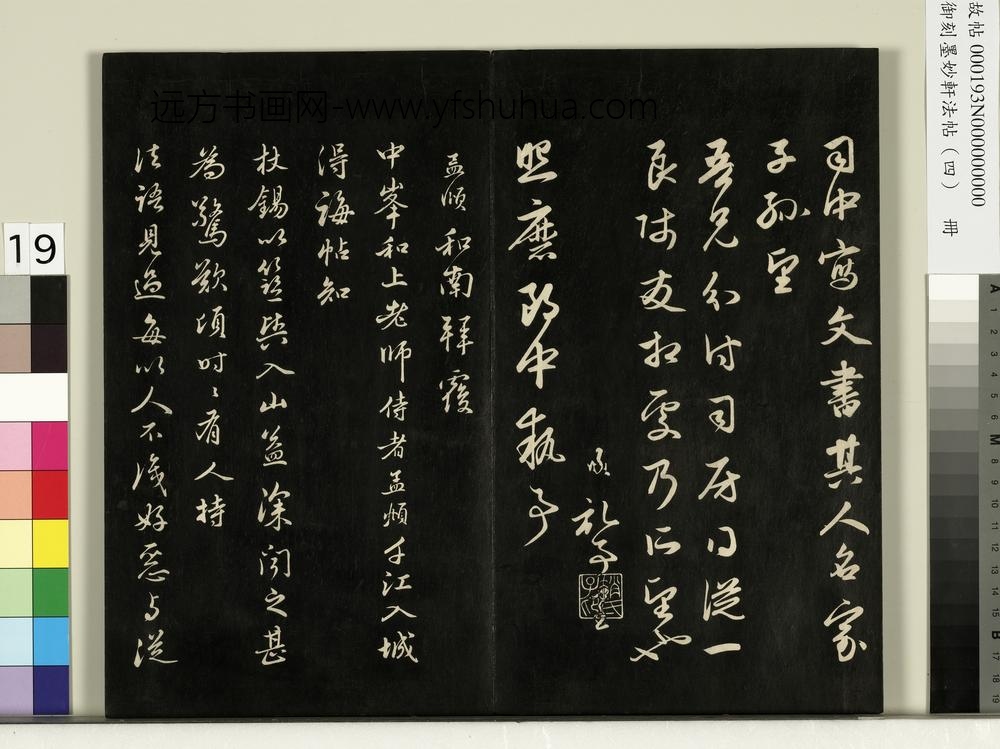 故帖 000193N000000000
御刻墨妙軒法帖（四） 冊
远方书画网-www.yfshuhua.com
司中寫文書其人名家
子孫望
吾兄分付司房日從一
良師友相處乃所望也
照磨郎中執事
孟頫和南拜覆
中峯和上老師侍者孟頫千江入城
得誨帖知
杖錫以籃輿入山益深聞之甚
為驚歎頃時〻有人持
法語見過每以人不識好惡与從
19